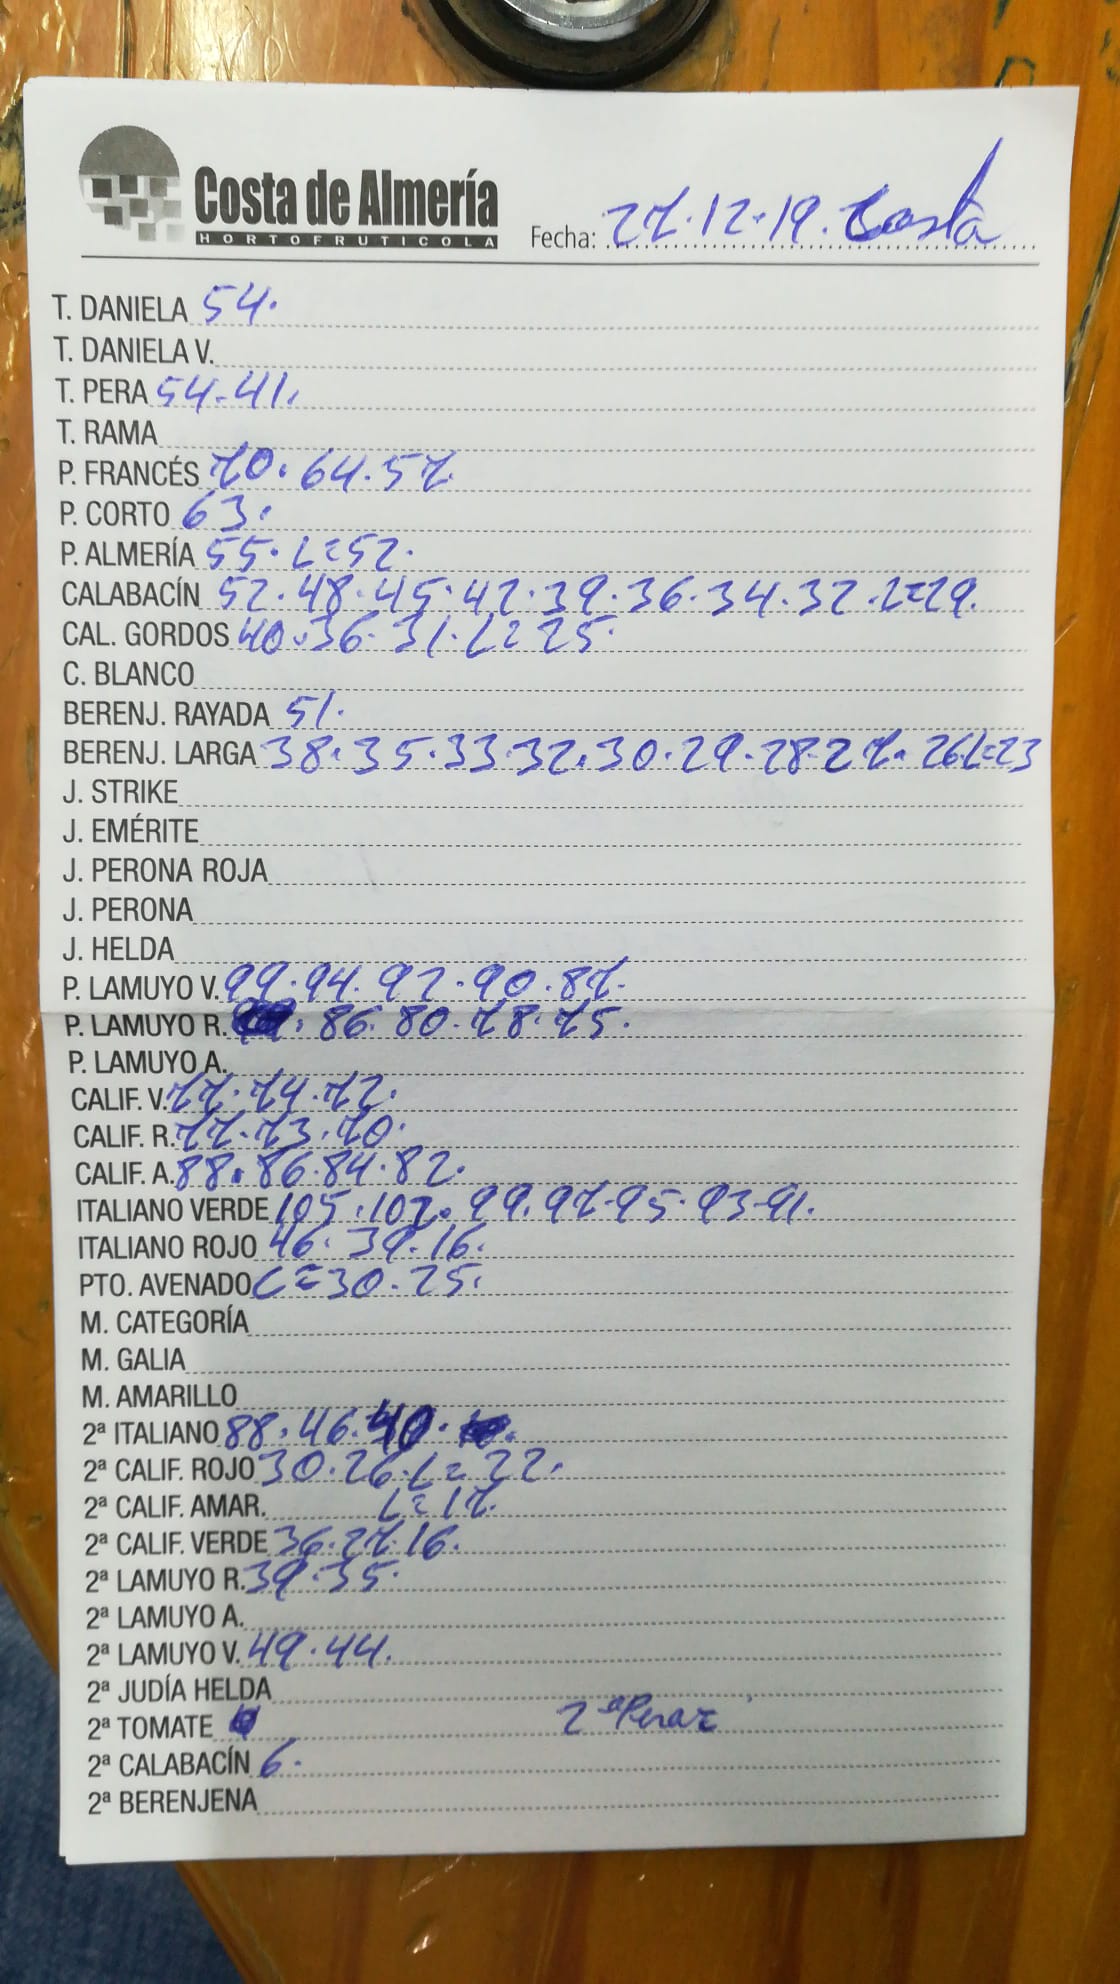 Costa de Almería
HORTOFRUTICOLA
Fecha: 27.12.19. Costa
T. DANIELA 54.
T. DANIELA V.
T. PERA 54.41.
T. RAMA
P. FRANCÉS 70. 64. 57.
P. CORTO 63.
P. ALMERÍA 55. L=52.
CALABACÍN 52.48.45.42.39.36.34.32.L=29.
CAL. GORDOS 40.36.31.L=25.
C. BLANCO
BERENJ. RAYADA 51.
BERENJ. LARGA 38.35.33.32.30.29.28.27.26.L=23
J. STRIKE
J. EMÉRITE
J. PERONA ROJA
J. PERONA
J. HELDA
P. LAMUYO V. 99.94.92.90.87.
P. LAMUYO R. 86.80.78.75.
P. LAMUYO A.
CALIF. V. 77.74.72.
CALIF. R. 77.73.70.
CALIF. A. 88.86.84.82.
ITALIANO VERDE 105.102.99.97.95.93.91.
ITALIANO ROJO 46.39.16.
PTO. AVENADO C=30.25.
M. CATEGORÍA
M. GALIA
M. AMARILLO
2ª ITALIANO 88.46.40.
2ª CALIF. ROJO 30.26.L=22.
2ª CALIF. AMAR. L=17.
2ª CALIF. VERDE 36.27.16.
2ª LAMUYO R. 39.35.
2ª LAMUYO A.
2ª LAMUYO V. 49.44.
2ª JUDÍA HELDA
2ª TOMATE 2ª
2ª CALABACÍN 6.
2ª BERENJENA